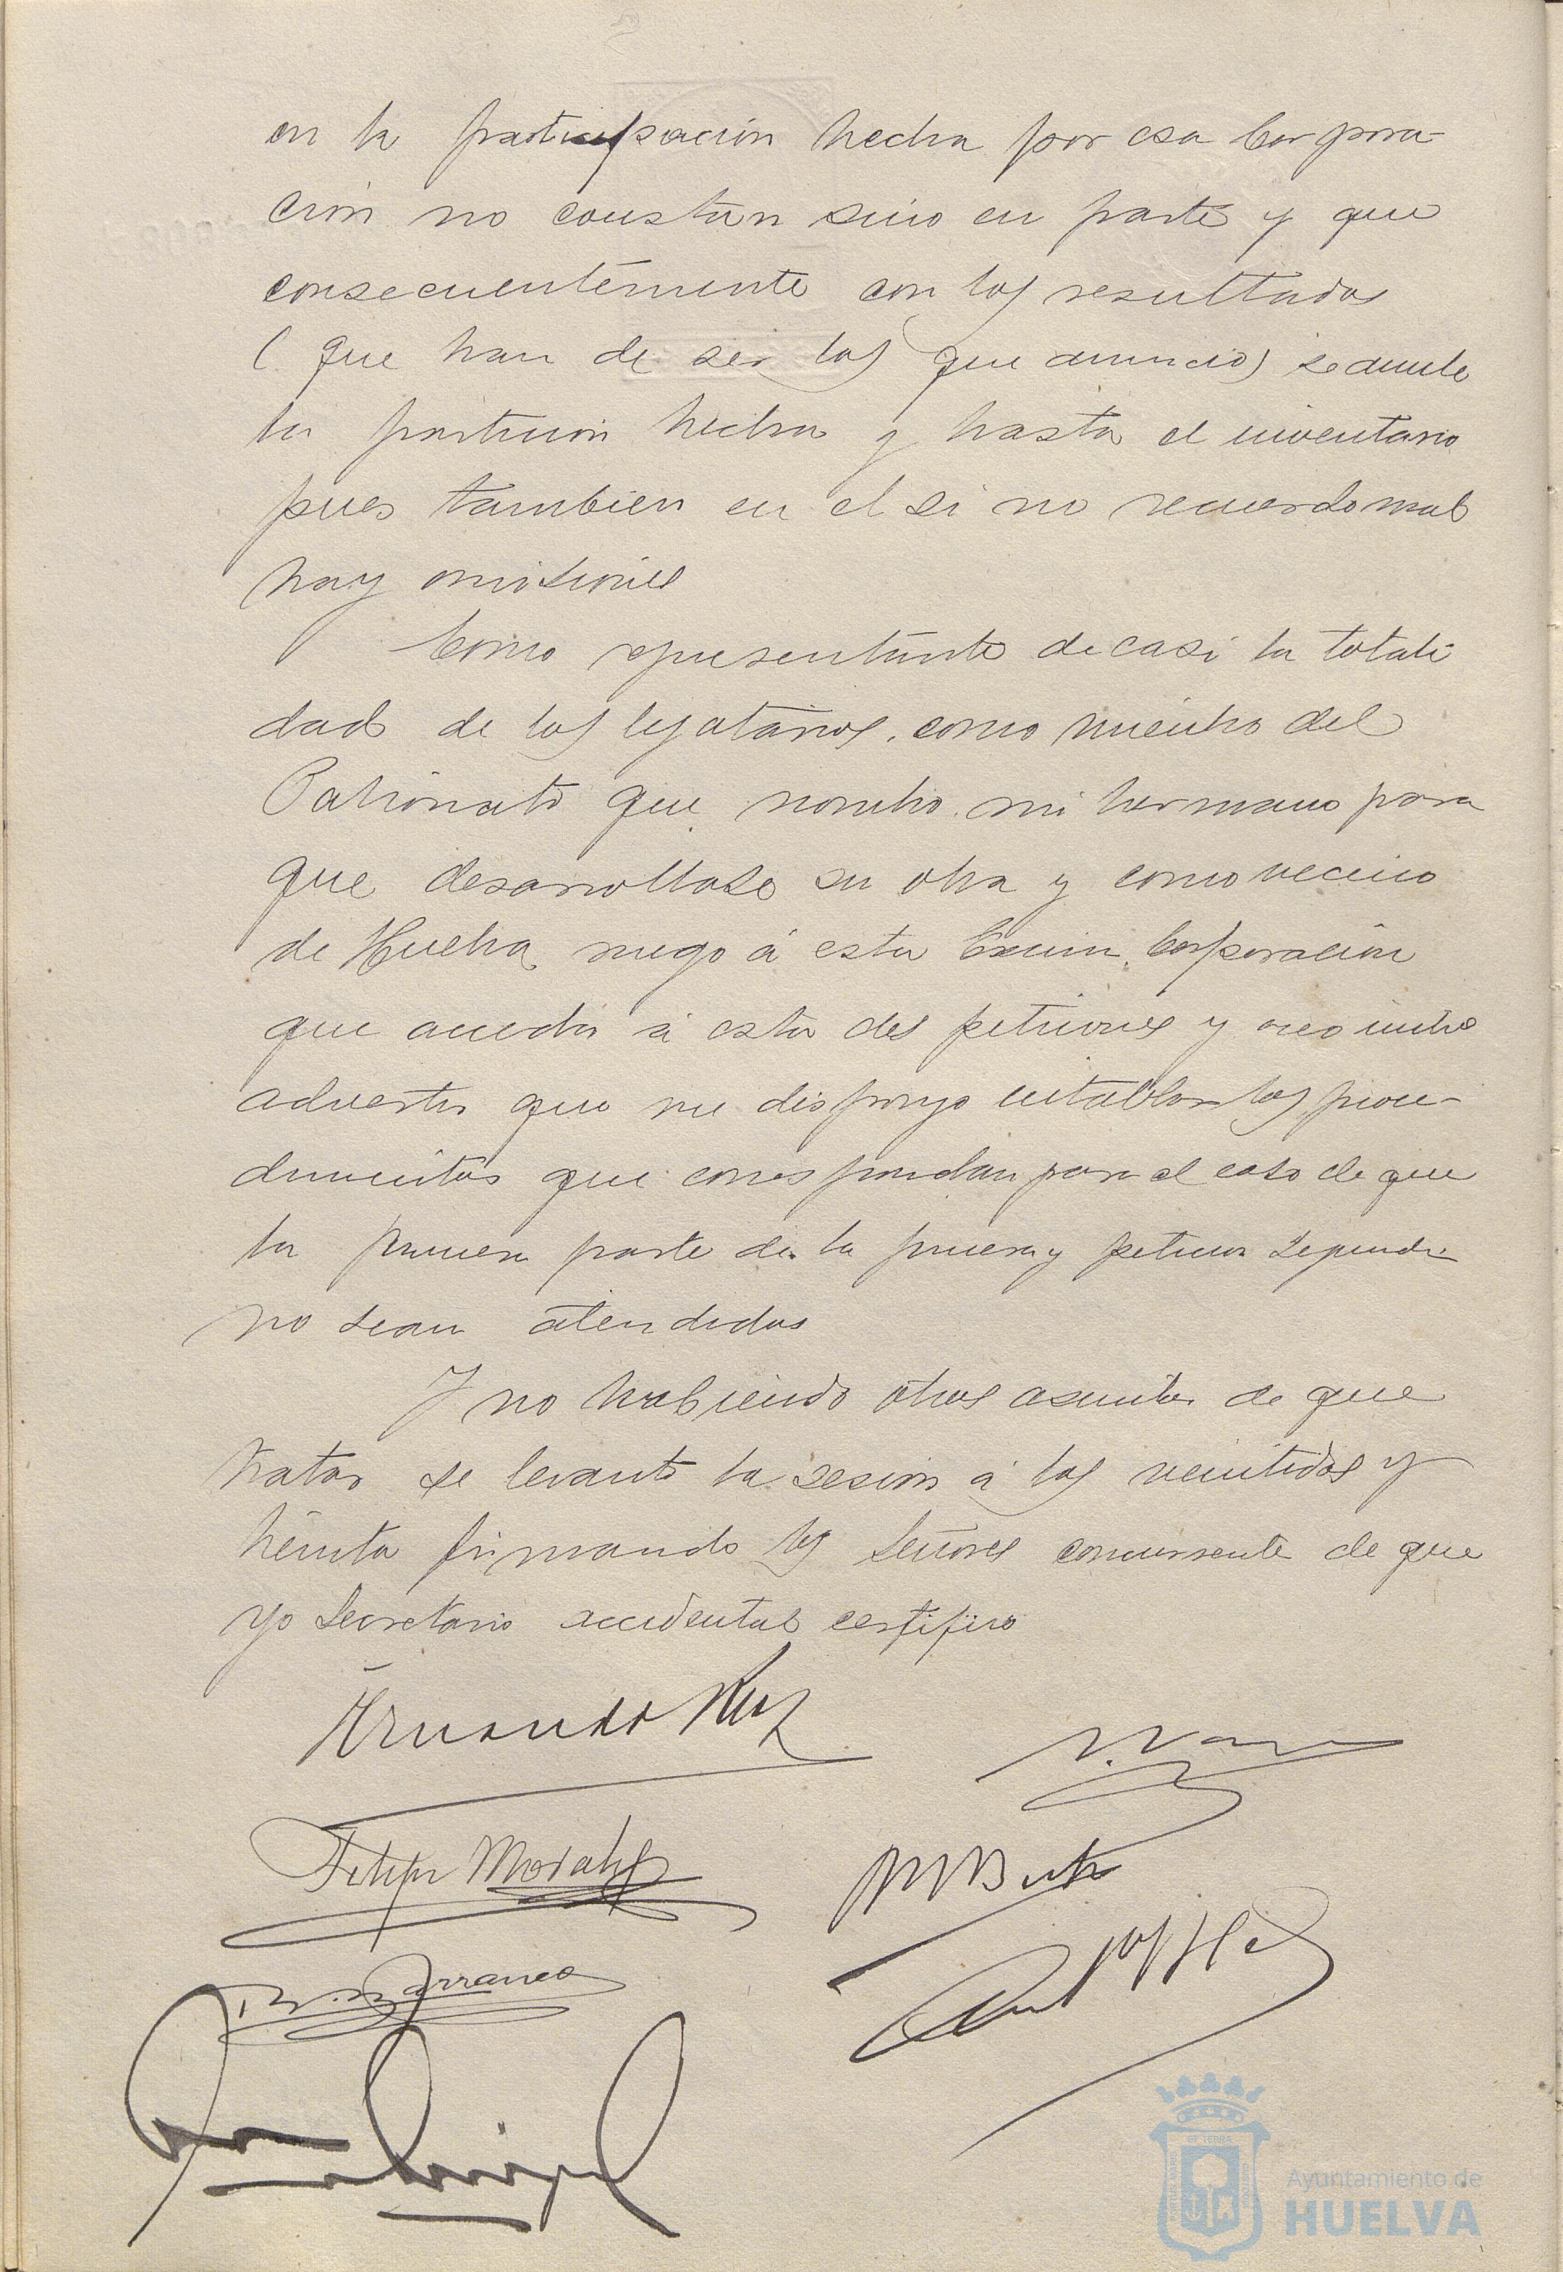 en la participación hecha por esa Corpora-
ción no constan sino en parte y que
consecuentemente con los resultados
(que han de ser los que anuncio) se anule
la partición hecha y hasta el inventario
pues tambien en el si no recuerdo mal
hay omisiones
Como representante de casi la totali
dad de los legatarios, como miembro del
Patronato que nombro mi hermano para
que desarrollase su obra y como vecino
de Huelva ruego á esta Excma. Corporación
que acceda á estas dos peticiones y creo
advertir que me dispongo entablar los proce-
dimientos que correspondan para el caso de que
la primera parte de la primera y peticion segunda
no sean atendidas
Y no habiendo otros asuntos de que
tratar se levantó la sesión á las veintidos y
treinta firmando los Señores concurrente de que
yo Secretario accidental certifico
Felipe Morales
Barranco
Ayuntamiento de
HUELVA